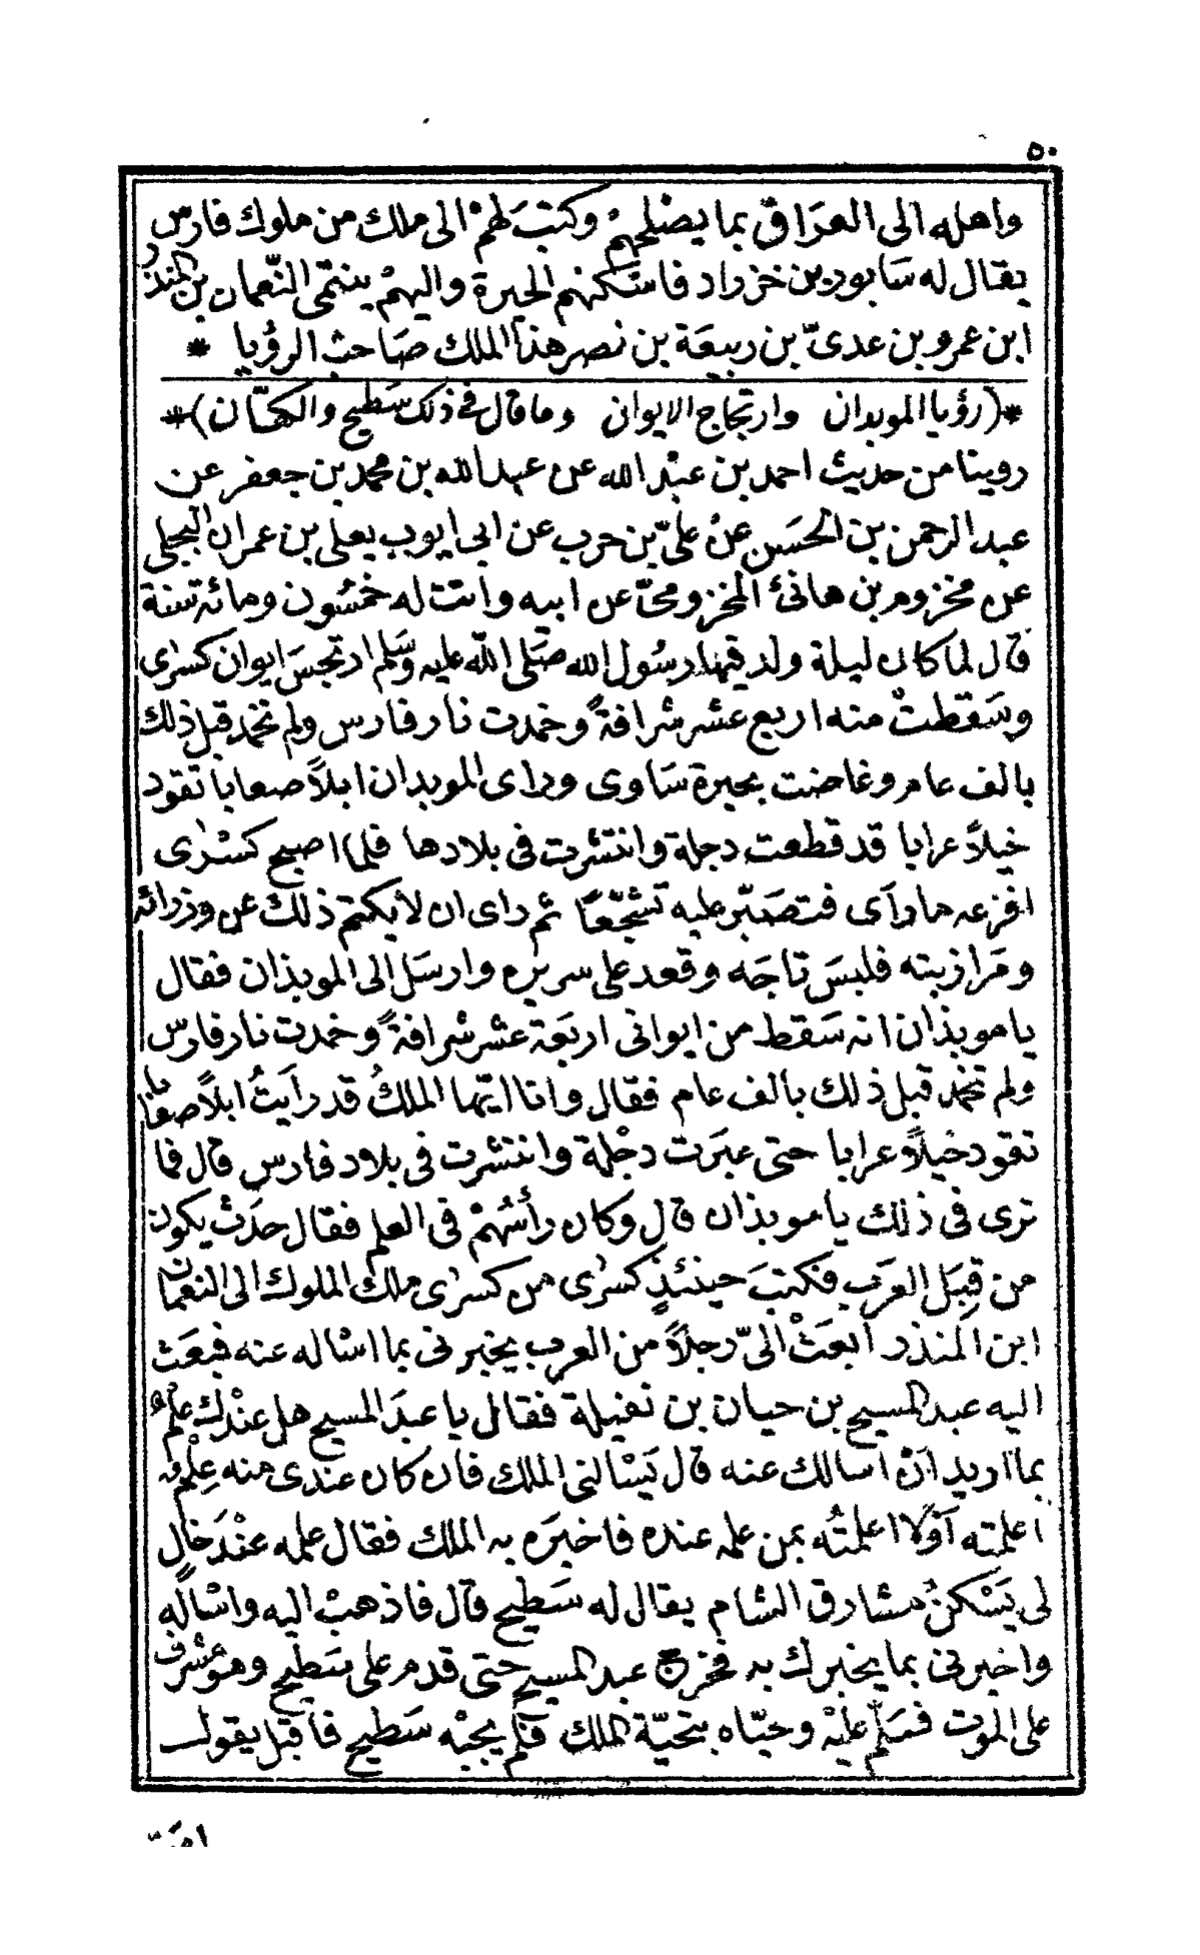 ٥٠
واهله الى العرَاق بما يصْلحهمْ وكتبَ لهمْ الى ملك من ملوك فارس
يقال له سَابور بن خرزاد فاسْكنهم الحيرة واليهمْ ينتمى النّعمان بن المنذر
ابن عمرو بن عدىّ بن ربيعَة بن نصر هذا الملك صَاحب الرؤيا *
*(رؤيا الموبذان وارتجاج الايوان وما قال فى ذلك سَطيح والكهّان)*
روينا من حديث احمد بن عبْد الله عن عبد الله بن محمد بن جعفر عن
عبد الرحمن بن الحسَن عنْ علىّ بن حرب عن ابى ايوب يعلى بن عمران البجلى
عن مخزوم بن هانئ المخزومىّ عن ابيه واتت له خمسُون ومائة سنة
قال لما كان ليلة ولد فيها رسُول الله صَلى الله عليه وسَلم ارتجسَ ايوان كسرى
وسَقطتْ منه اربع عشر شرافةً وخمدت نار فارس ولم تخمد قبل ذلك
بالف عام وغاضت بحيرة سَاوى وراى الموبذان ابلاً صعابا تقود
خيلاً عرابا قد قطعت دجلة وانتشرت فى بلادها فلما اصبح كسْرى
افزعه ما رآى فتصَبّر عليه تشجّعًا ثم راى ان لا يكتم ذلك عن وزرائه
ومَرازبته فلبسَ تاجَه وقعد على سريره وارسَل الى الموبذان فقال
يا موبذان انه سَقط من ايوانى اربَعة عشر شرافةً وخمدت نار فارس
ولم تخمد قبل ذلك بالف عام فقال وانا ايّها الملكُ قد رايَتُ ابلاً صعابا
تقود خيلاً عرابا حتى عبَرت دجْلة وانتشرت فى بلاد فارس قال فما
ترى فى ذلك يا موبذان قال وكان رأسُهمْ فى العلم فقال حدَث يكون
من قِبَل العَرب فكتبَ حينئذٍ كسْرى من كسرى ملك الملوك الى النعمان
ابن المنذر ابعَثْ الىّ رجلاً من العرب يخبرنى بما اسْاله عنه فبعَث
اليه عبد المسيح بن حيان بن نفيلة فقال يا عبدَ المسيح هل عنْدك علْمٌ
بما اريد انْ اسَالك عنه قال يَسْالنى الملك فان كان عندى منه عِلْم
اعلمته اوْلا اعلمتُه بمن علمه عنده فاخبَره به الملك فقال علمه عنْدَ خال
لى يَسْكنُ مشارق الشام يقال له سَطيح قال فاذهبْ اليه واسْالهُ
واخبرنى بما يخبرك به فخرج عبد المسيح حتى قدم على سَطيح وهو مُشرف
على الموت فسَلّم عليْه وحيّاه بتحيّة الملك فلم يجبْه سَطيح فاقبَل يقول